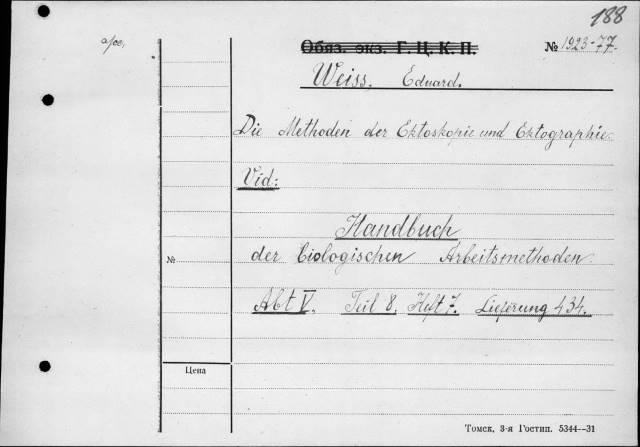 188
Обяз. экз. Г. Ц. К. П.
№ 1923-77.
Weiss, Eduard.
Die Methoden der Ektoskopie und Ektographie.
Vid:
Handbuch
der biologischen Arbeitsmethoden.
№
Abt V, Teil 8, Heft 7. Lieferung 434.
Цена
Томск, 3-я Гостип. 5344—31